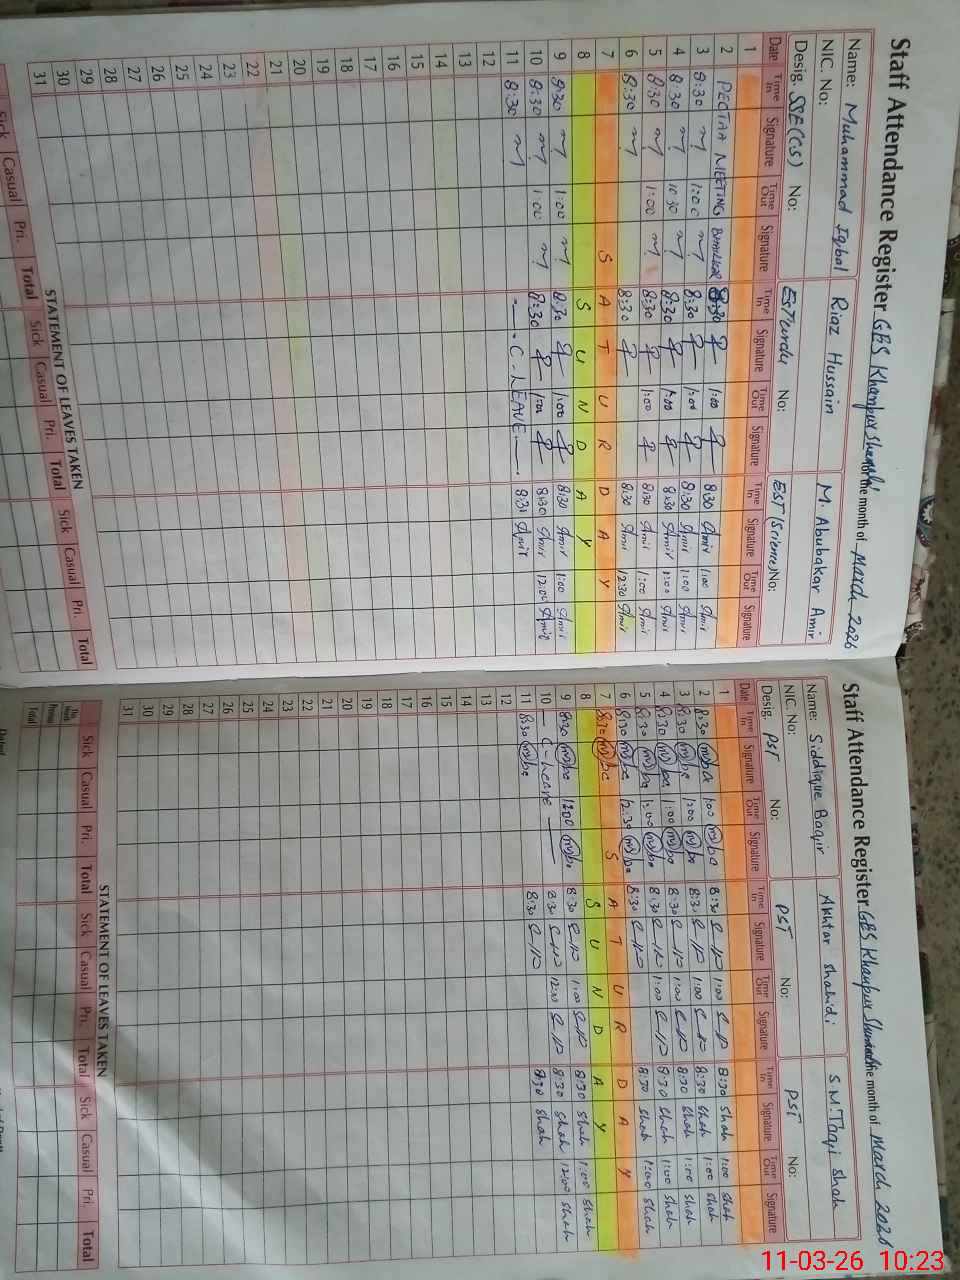 Staff Attendance Register GES Khanpur Shumali for the month of March 2026
Name: Muhammad Iqbal Riaz Hussain M. Abubakar Amir
NIC. No:
Desig. SSE(CS) No: EST Urdu No: EST (Science) No:
Date Time In Signature Time Out Signature Time In Signature Time Out Signature Time In Signature Time Out Signature
1
2 PECTAA MEETING 8:30 1:00 8:30 Amir 1:00 Amir
3 8:30 1:00 8:30 1:00 8:30 Amir 1:00 Amir
4 8:30 10:30 8:30 1:00 8:30 Amir 1:00 Amir
5 8:30 1:00 8:30 1:00 8:30 Amir 1:00 Amir
6 8:30 8:30 8:30 Amir 12:30 Amir
7 S A T U R D A Y
8 S U N D A Y
9 8:30 1:00 8:30 1:00 8:30 Amir 1:00 Amir
10 8:30 1:00 8:30 1:00 8:30 Amir 12:00 Amir
11 8:30 C-LEAVE 8:30 Amir
12
13
14
15
16
17
18
19
20
21
22
23
24
25
26
27
28
29
30
31
STATEMENT OF LEAVES TAKEN
Sick Casual Pri. Total Sick Casual Pri. Total Sick Casual Pri. Total
Staff Attendance Register GES Khanpur Shumali the month of March 2026
Name: Siddique Baqir Akhtar Shahidi S.M. Taqi Shah
NIC. No:
Desig. PST No: PST No: PST No:
Date Time In Signature Time Out Signature Time In Signature Time Out Signature Time In Signature Time Out Signature
1
2 8:30 1:00 8:30 1:00 8:30 Shah 1:00 Shah
3 8:30 1:00 8:30 1:00 8:30 Shah 1:00 Shah
4 8:30 1:00 8:30 1:00 8:30 Shah 1:00 Shah
5 8:30 1:00 8:30 1:00 8:30 Shah 1:00 Shah
6 8:30 12:30 8:30 8:30 Shah 1:00 Shah
7 8:30 S A T U R D A Y
8 S U N D A Y
9 8:30 1:00 8:30 1:00 8:30 Shah 1:00 Shah
10 C-Leave 8:30 12:00 8:30 Shah 12:00 Shah
11 8:30 8:30 8:30 Shah
12
13
14
15
16
17
18
19
20
21
22
23
24
25
26
27
28
29
30
31
STATEMENT OF LEAVES TAKEN
Sick Casual Pri. Total Sick Casual Pri. Total Sick Casual Pri. Total
Total
11-03-26 10:23